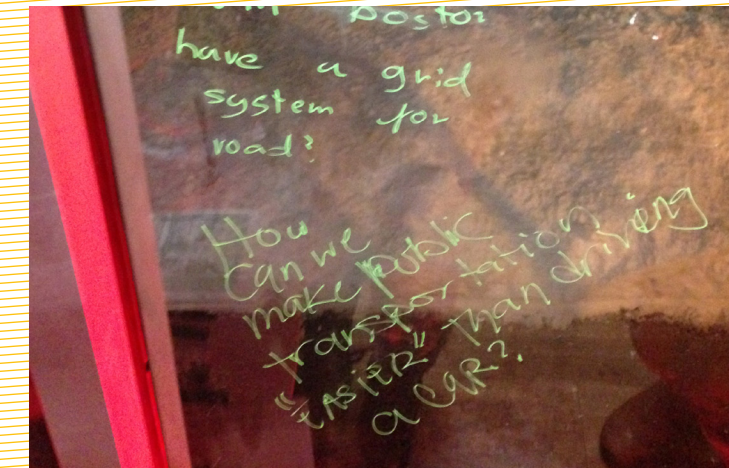 Boston
have a grid
system for
road?
How
can we
make public
transportation
"EASIER" than driving
a CAR?